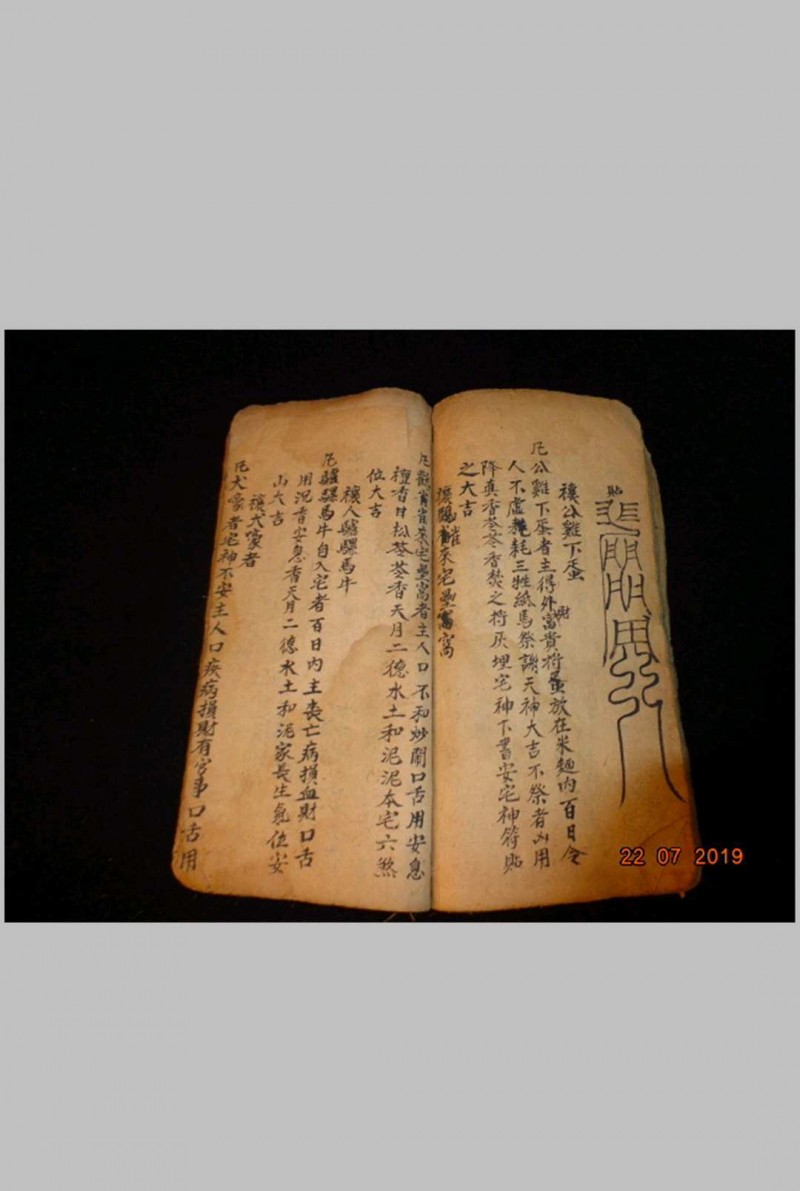 貼
禳公雞下蛋
凡公雞下蛋者主得外財富貴將蛋放在米麵內百日令
人不虛耗三牲紙馬祭謝天神大吉不祭者凶用
降真香苓苓香焚之將灰埋宅神下書安宅神符貼
之大吉
禳 來宅壘窩
凡 來宅壘窩者主人口不和炒鬧口舌用安息
檀香甘松苓苓香天月二德水土和泥泥本宅六煞
位大吉
禳人驢騾馬牛
凡驢騾馬牛自入宅者百日內主喪亡病損血財口舌
用沉香安息香天月二德水土和泥家長生氣位安
山大吉
禳犬豪者
凡犬豪者宅神不安主人口疾病損財有官事口舌用
22 07 2019